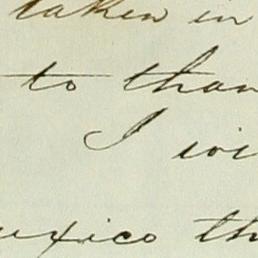 taken in
to than
I wi
uxico th